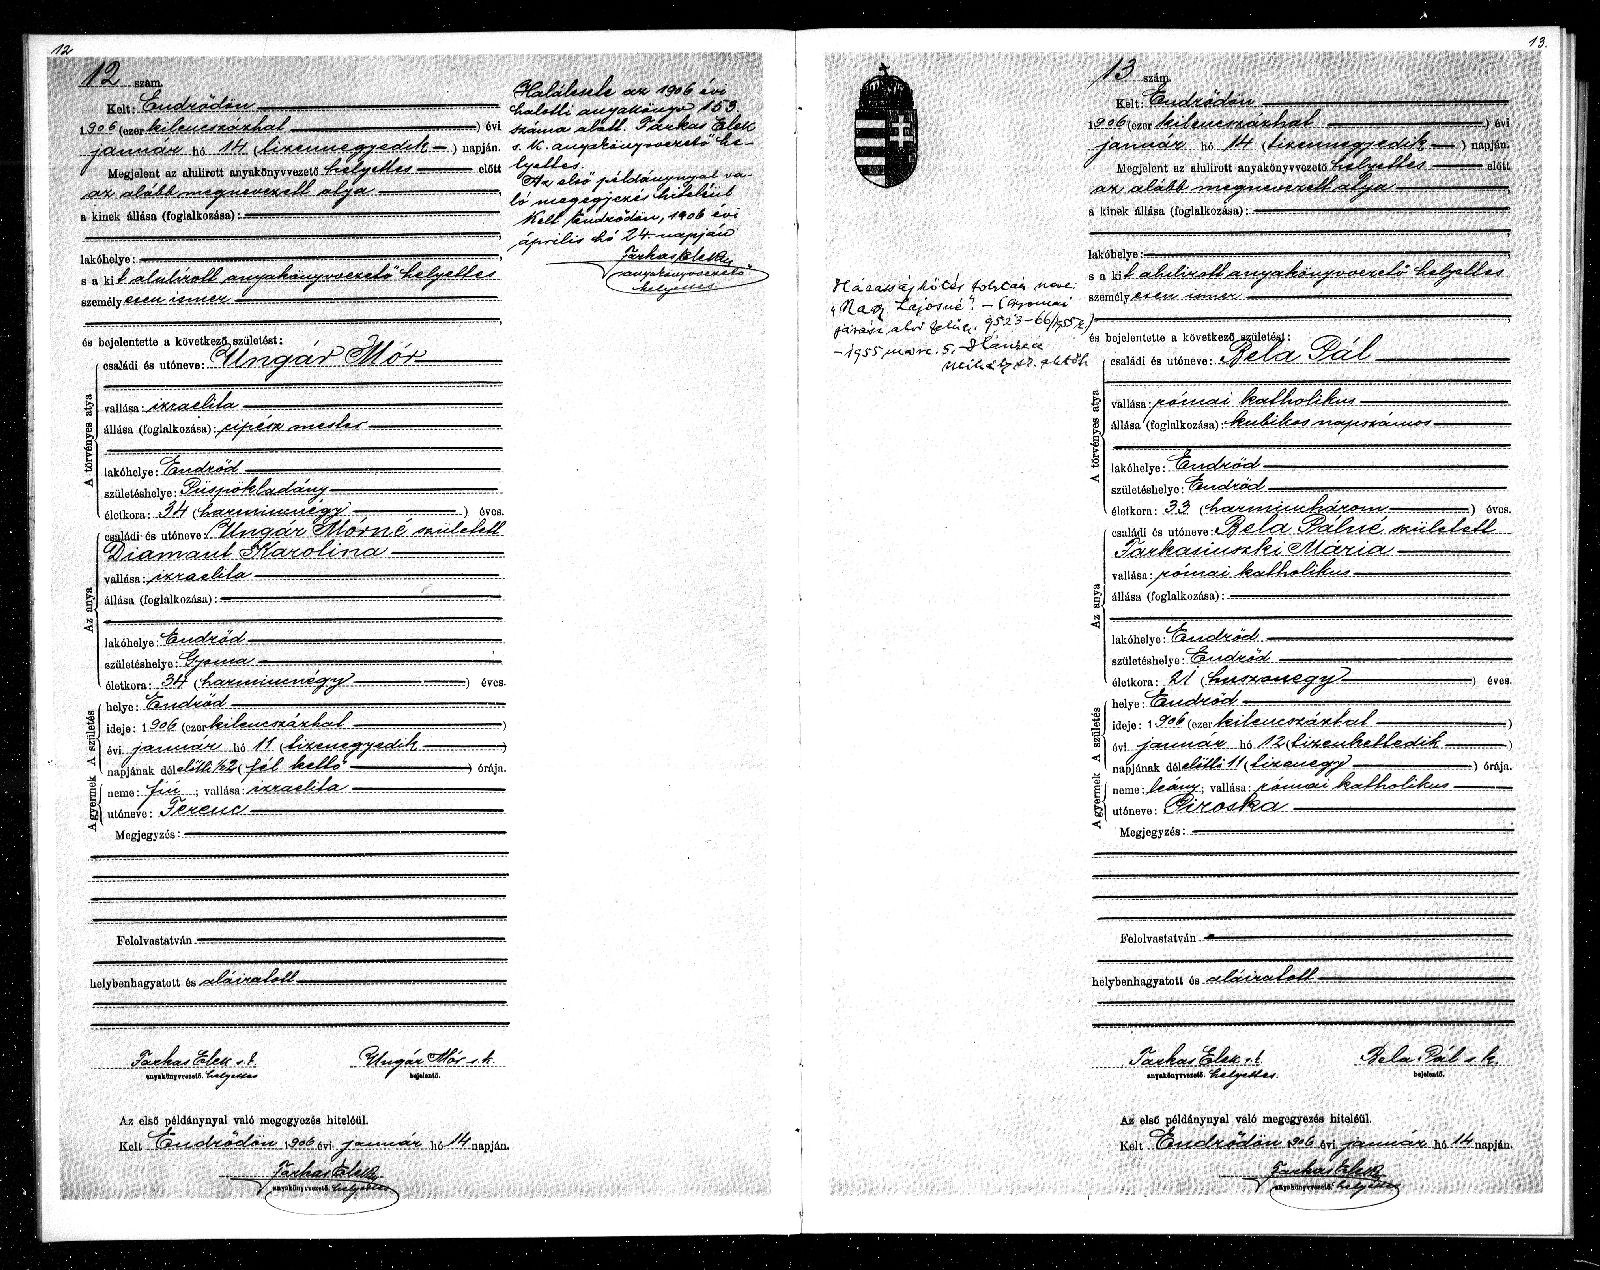 12
12 szám.
Kelt: Endrődön
1906 (ezer kilencszázhat ) évi
január hó 14 (tizennegyedik ) napján.
Megjelent az alulirott anyakönyvvezető helyettes előtt
az alább megnevezett atya
a kinek állása (foglalkozása):
lakóhelye:
s a kit alulirott anyakönyvvezető helyettes
személyesen ismer
és bejelentette a következő születést:
A törvényes atya
családi és utóneve: Ungár Mór
vallása: izraelita
állása (foglalkozása): cipész mester
lakóhelye: Endrőd
születéshelye: Püspökladány
életkora: 34 (harmincnégy ) éves.
Az anya
családi és utóneve: Ungár Mórné született
Diamant Karolina
vallása: izraelita
állása (foglalkozása):
lakóhelye: Endrőd
születéshelye: Gyoma
életkora: 34 (harmincnégy ) éves.
A születés
helye: Endrőd
ideje: 1906 (ezer kilencszázhat )
évi január hó 11 (tizenegyedik )
napjának délelőtti ½2 (fél kettő ) órája.
A gyermek
neme: fiú ; vallása: izraelita
utóneve: Ferenc
Megjegyzés:
Felolvastatván
helybenhagyatott és aláiratott
Farkas Elek s. k. Ungár Mór s. k.
anyakönyvvezető. helyettes bejelentő.
Az első példánynyal való megegyezés hiteléül.
Kelt Endrődön 1906 évi január hó 14 napján.
Farkas Elek
anyakönyvvezető. helyettes
Halálesete az 1906 évi
halotti anyakönyv 153
száma alatt. Farkas Elek
s. k. anyakönyvvezető he-
lyettes.
Az első példánynyal va-
ló megegyezés hiteléül
Kelt Endrődön, 1906 évi
április hó 24 napján
Farkas Elek
anyakönyvvezető
helyettes
13.
13 szám.
Kelt: Endrődön
1906 (ezer kilencszázhat ) évi
január hó 14 (tizennegyedik ) napján.
Megjelent az alulirott anyakönyvvezető helyettes előtt
az alább megnevezett atya
a kinek állása (foglalkozása):
lakóhelye:
s a kit alulirott anyakönyvvezető helyettes
személyesen ismer
és bejelentette a következő születést:
A törvényes atya
családi és utóneve: Bela Pál
vallása: római katholikus
állása (foglalkozása): kubikos napszámos
lakóhelye: Endrőd
születéshelye: Endrőd
életkora: 33 (harminchárom ) éves.
Az anya
családi és utóneve: Bela Pálné született
Farkasinszki Mária
vallása: római katholikus
állása (foglalkozása):
lakóhelye: Endrőd
születéshelye: Endrőd
életkora: 21 (huszonegy ) éves.
A születés
helye: Endrőd
ideje: 1906 (ezer kilencszázhat )
évi január hó 12 (tizenkettedik )
napjának délelőtti 11 (tizenegy ) órája.
A gyermek
neme: leány; vallása: római katholikus
utóneve: Piroska
Megjegyzés:
Felolvastatván
helybenhagyatott és aláiratott
Farkas Elek s. k. Bela Pál s. k.
anyakönyvvezető. helyettes. bejelentő.
Az első példánynyal való megegyezés hiteléül.
Kelt Endrődön 1906 évi január hó 14 napján.
Farkas Elek
anyakönyvvezető. helyettes
Házasságkötés folytán neve:
"Nagy Lajosné". – (Gyomai
9523–66/1955 sz)
– 1955 márc. 5. –